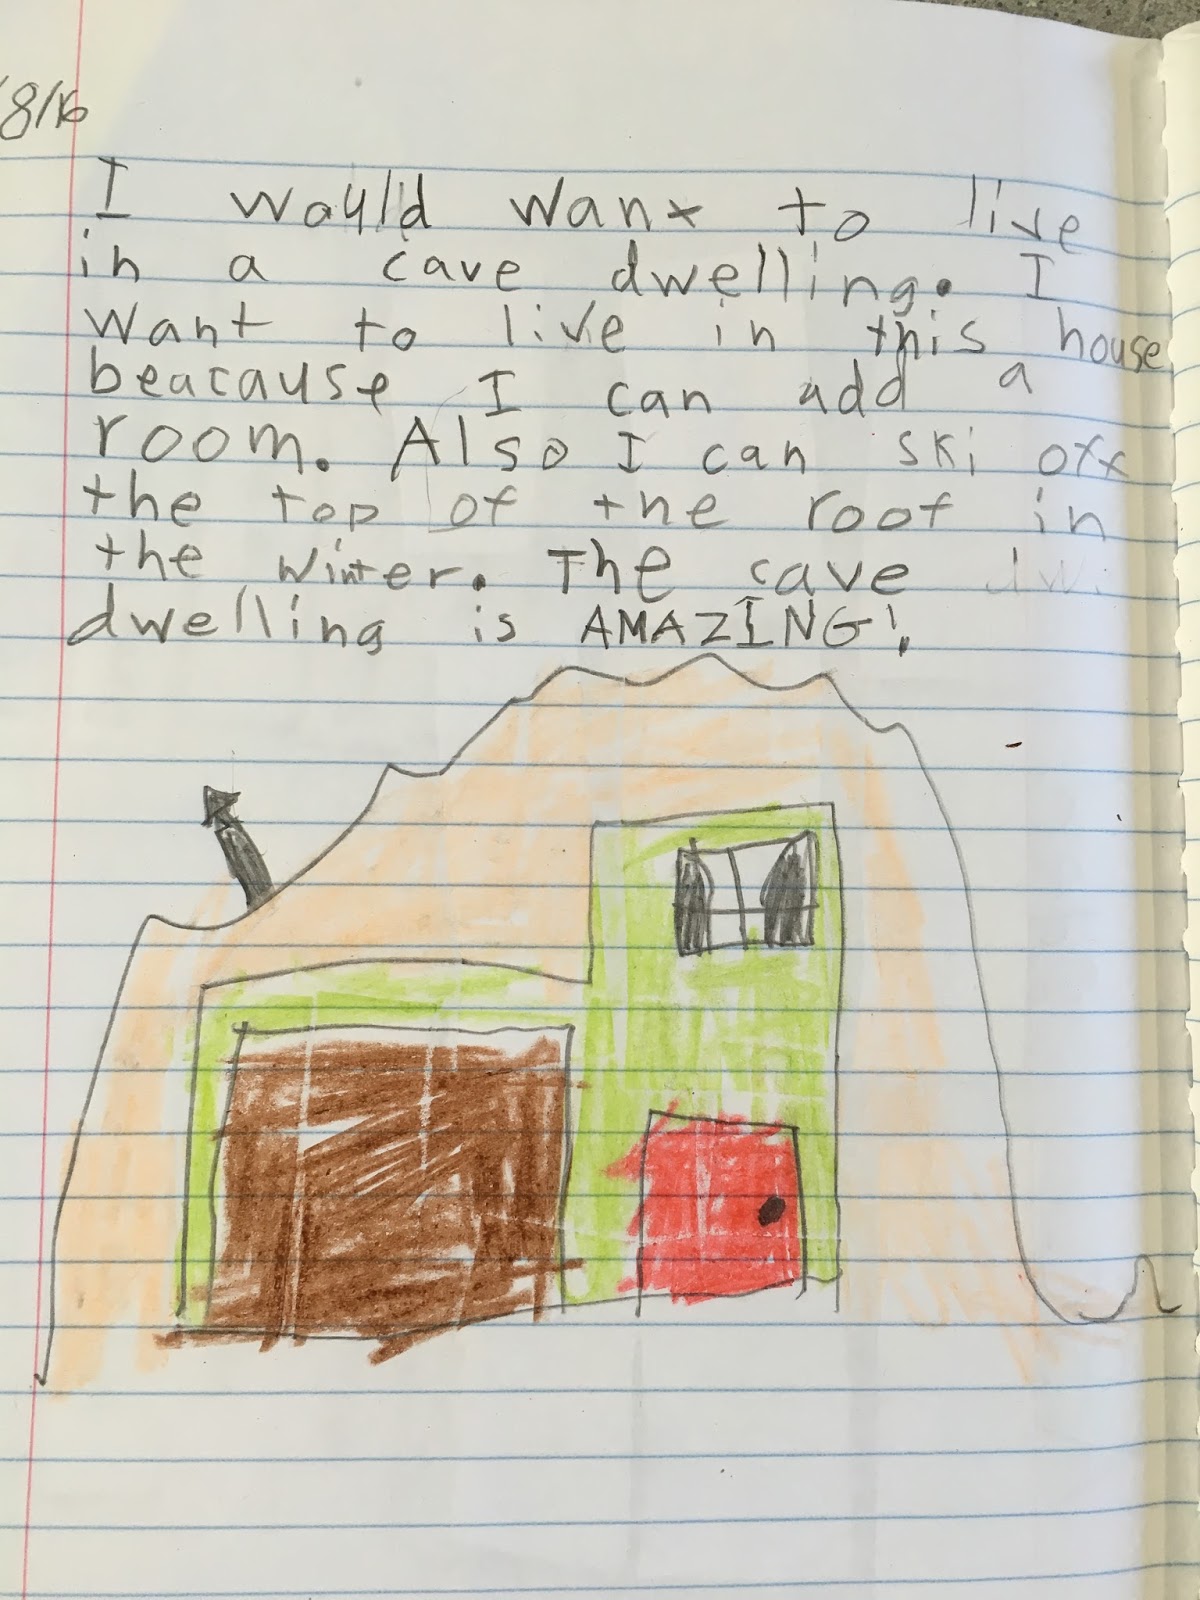 8/16
I would want to live
in a cave dwelling. I
want to live in this house
beacause I can add a
room. Also I can ski off
the top of the roof in
the winter. The cave
dwelling is AMAZING!